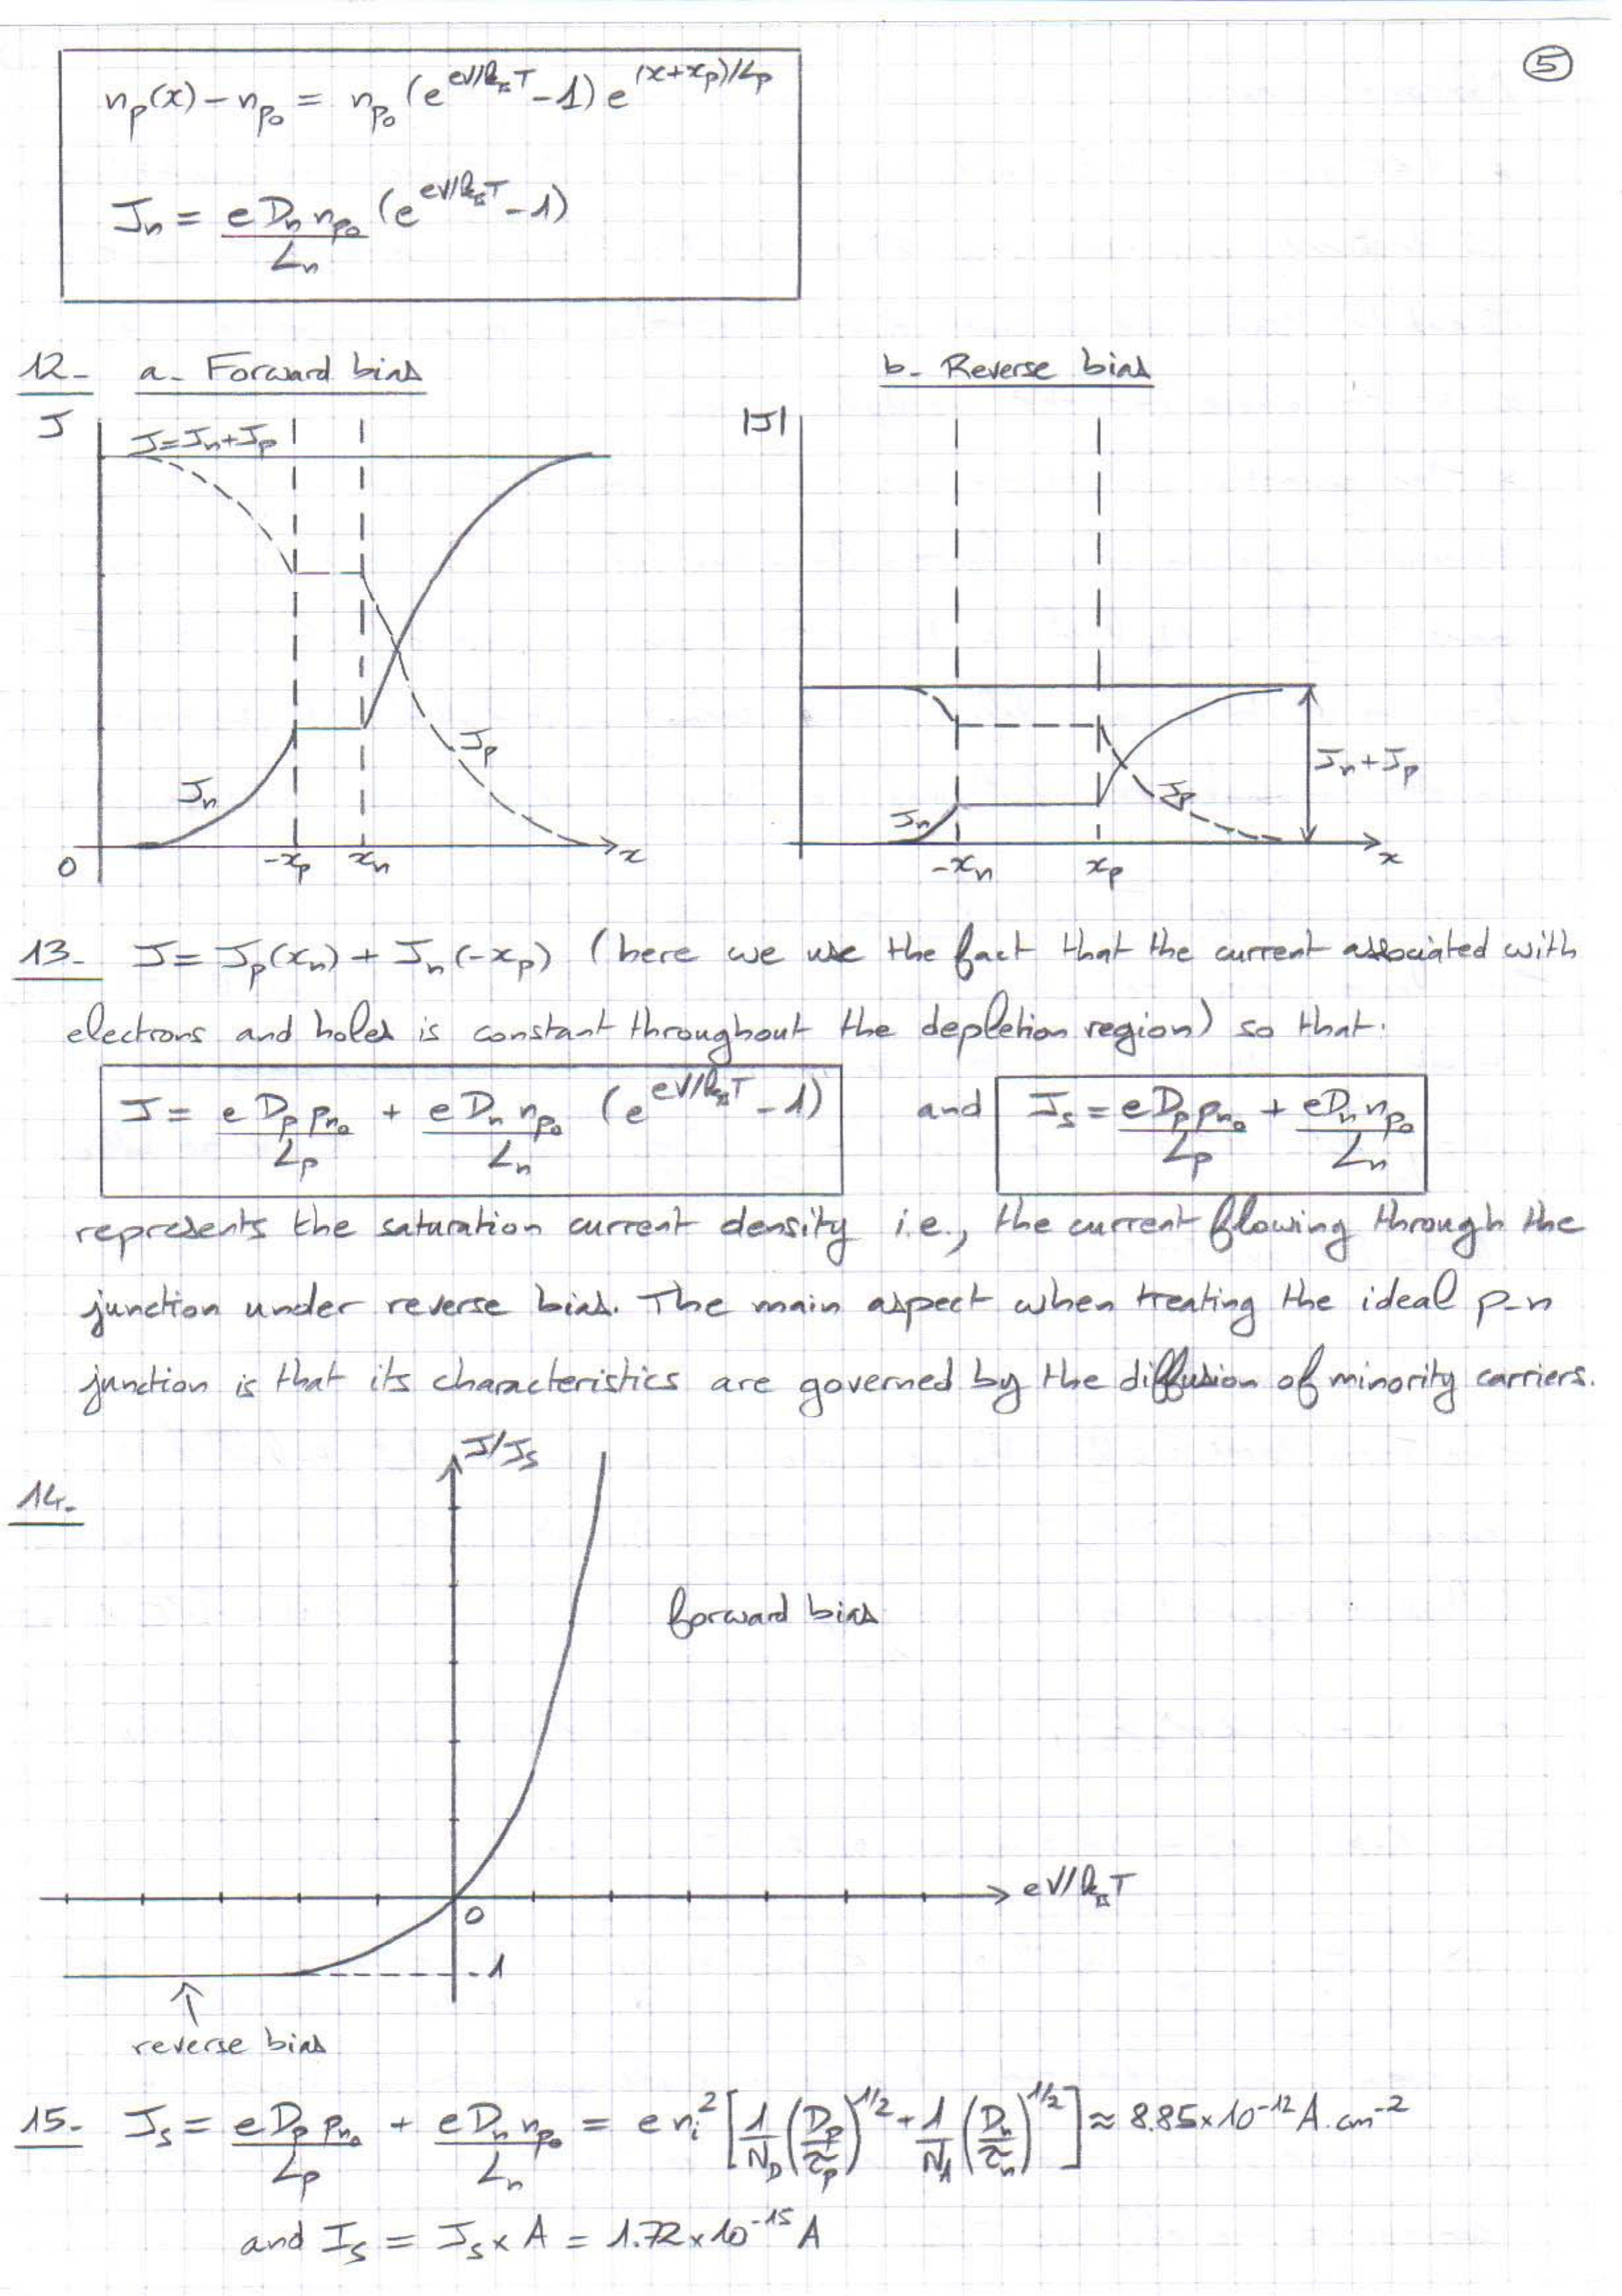 5
n_p(x) - n_p0 = n_p0 (e^{eV/k_BT} - 1) e^{(x+x_p)/L_p}
J_n = eD_n n_p0 / L_n (e^{eV/k_BT} - 1)
12- a- Forward bias
b- Reverse bias
J
J=J_n+J_p
J_n
J_p
0
-x_p
x_n
x
|J|
J_n
J_p
J_n+J_p
-x_n
x_p
x
13- J = J_p(x_n) + J_n(-x_p) (here we use the fact that the current associated with
electrons and holes is constant throughout the depletion region) so that:
J = eD_p p_n0 / L_p + eD_n n_p0 / L_n (e^{eV/k_BT} - 1) and J_s = eD_p p_n0 / L_p + eD_n n_p0 / L_n
represents the saturation current density i.e., the current flowing through the
junction under reverse bias. The main aspect when treating the ideal p-n
junction is that its characteristics are governed by the diffusion of minority carriers.
14-
J/J_s
forward bias
eV/k_BT
0
-1
reverse bias
15- J_s = eD_p p_n0 / L_p + eD_n n_p0 / L_n = e n_i^2 [1/N_D (D_p/τ_p)^{1/2} + 1/N_A (D_n/τ_n)^{1/2}] ≈ 8.85×10^{-12} A.cm^{-2}
and I_s = J_s × A = 1.72×10^{-15} A